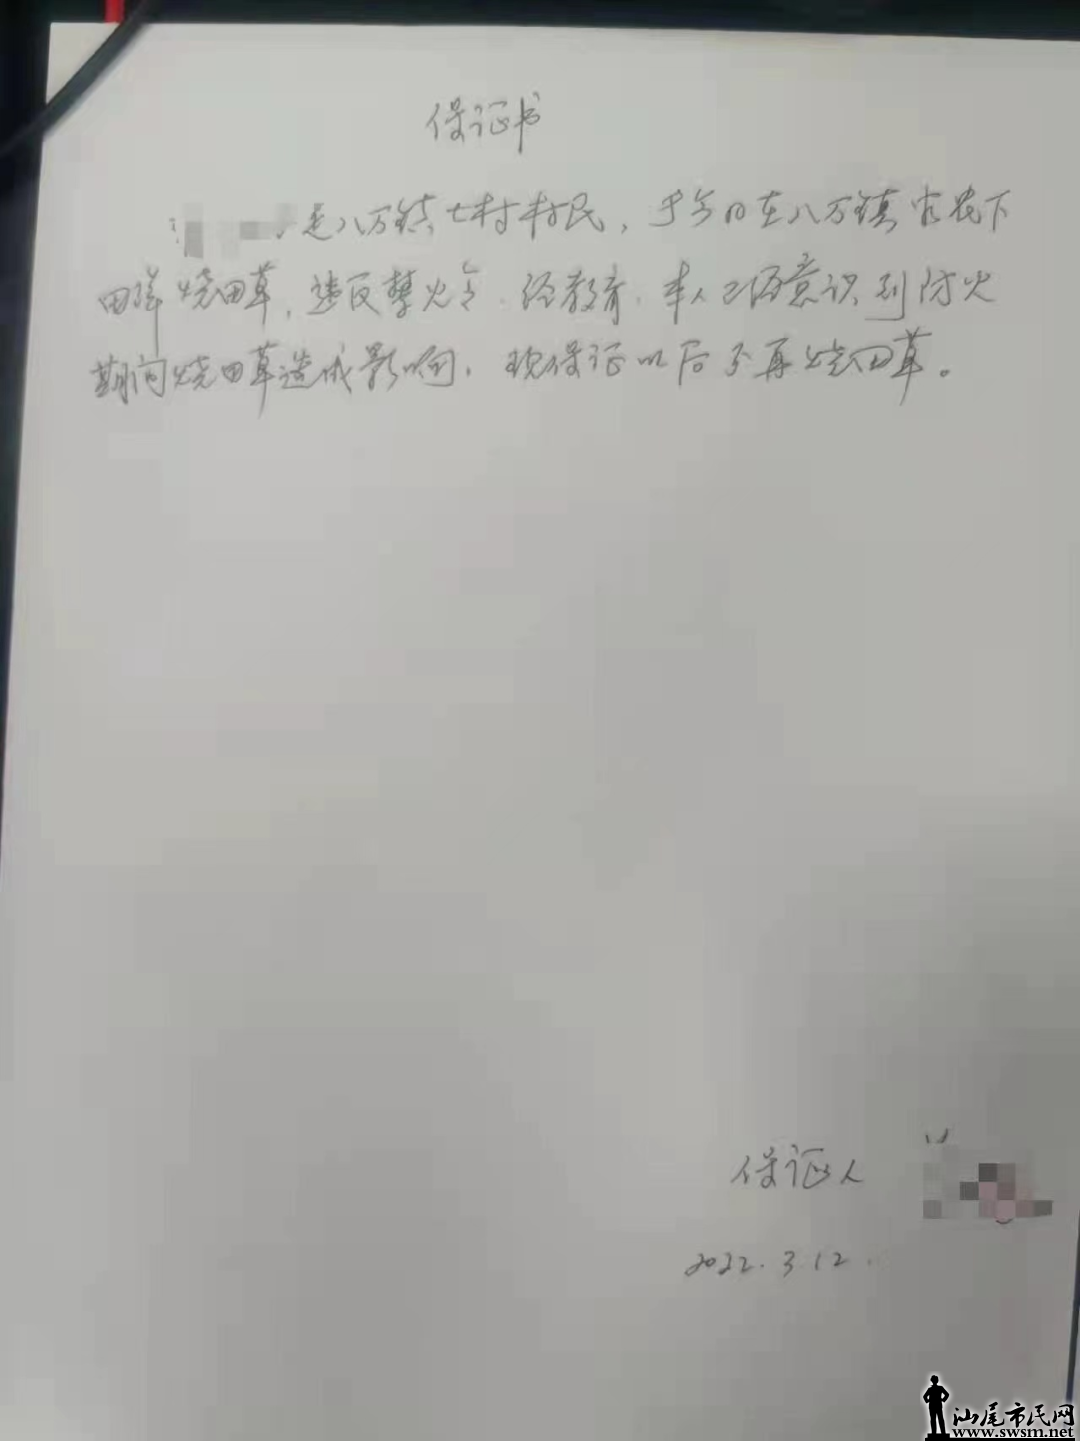 保证书
是八万镇七村村民，于今日在八万镇下
田洋烧田草，违反禁火令，经教育，本人已经意识到防火
期间烧田草造成影响，现保证以后不再烧田草。
保证人
2022.3.12.
汕尾市民网
www.swsm.net